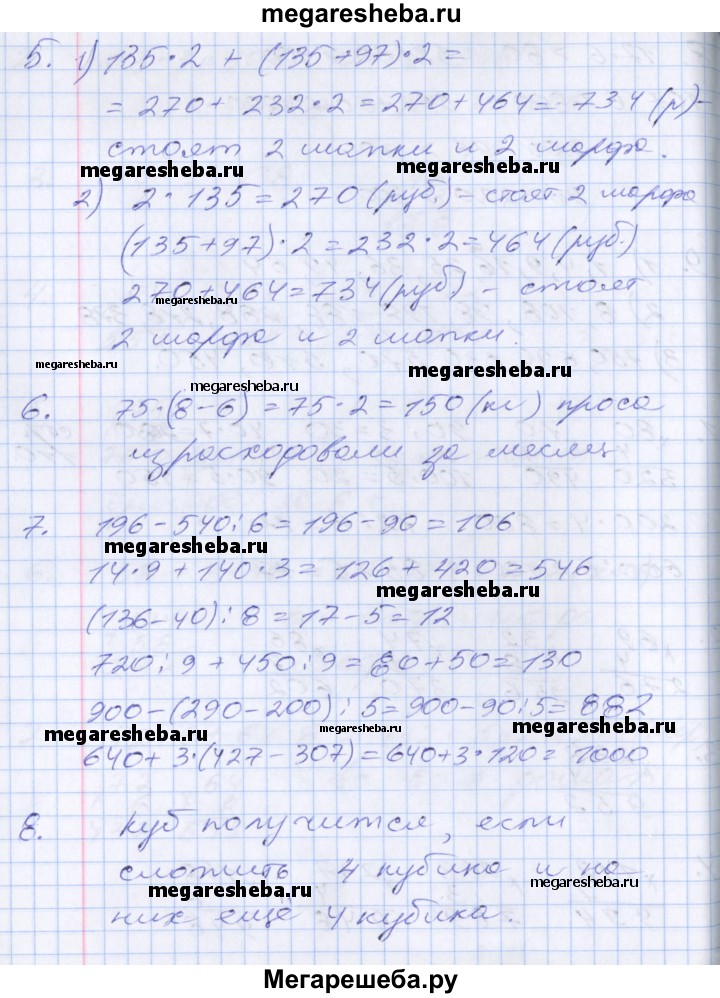 megaresheba.ru
5. 1) 135·2 + (135+97)·2 =
= 270+ 232·2 = 270+464= 734 (р)–
стоят 2 шапки и 2 шарфа.
megaresheba.ru megaresheba.ru
2) 2·135=270 (руб.) – стоят 2 шарфа
(135+97)·2=232·2=464 (руб.)
270+464=734 (руб) – стоят
megaresheba.ru
2 шарфа и 2 шапки.
megaresheba.ru megaresheba.ru
megaresheba.ru
6. 75·(8–6) = 75·2=150 (кг) проса
израсходовали за месяц
7. 196–540:6=196–90=106
megaresheba.ru
14·9+140·3= 126+ 420=546
megaresheba.ru
(136–40):8=17–5=12
720:9+450:9=80+50=130
900–(290–200):5=900–90:5=882
megaresheba.ru megaresheba.ru megaresheba.ru
640+ 3·(427–307)=640+3·120=1000
8. Куб получится, если
сложить 4 кубика и на
megaresheba.ru megaresheba.ru
них ещё 4 кубика.
Мегарешеба.ру